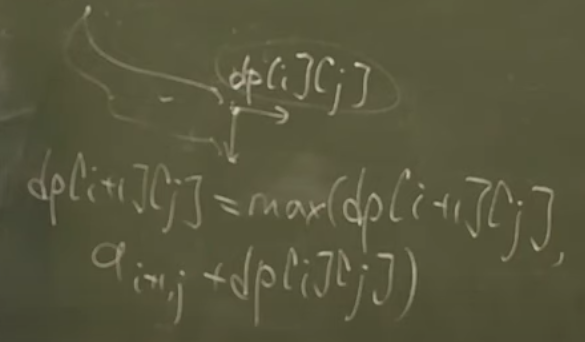 dp[i][j]
dp[i+1][j] = max(dp[i+1][j],
a_{i+1,j} + dp[i][j])